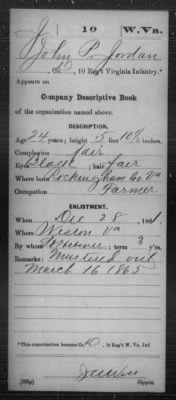 J 10 W.Va.
John P. Jordan
Co. D, 10 Reg't Virginia Infantry.*
Appears on
Company Descriptive Book
of the organization named above.
DESCRIPTION.
Age 24 years; height 5 feet 10½ inches.
Complexion fair
Eyes ; hair fair
Where born Rockingham Co Va
Occupation Farmer
ENLISTMENT.
When Dec 28, 1861.
Where Weston Va
By whom ; term 3 y'rs.
Remarks: Mustered out
March 16 1865
*This organization became Co. D, 10 Reg't W. Va. Inf.
Copyist.